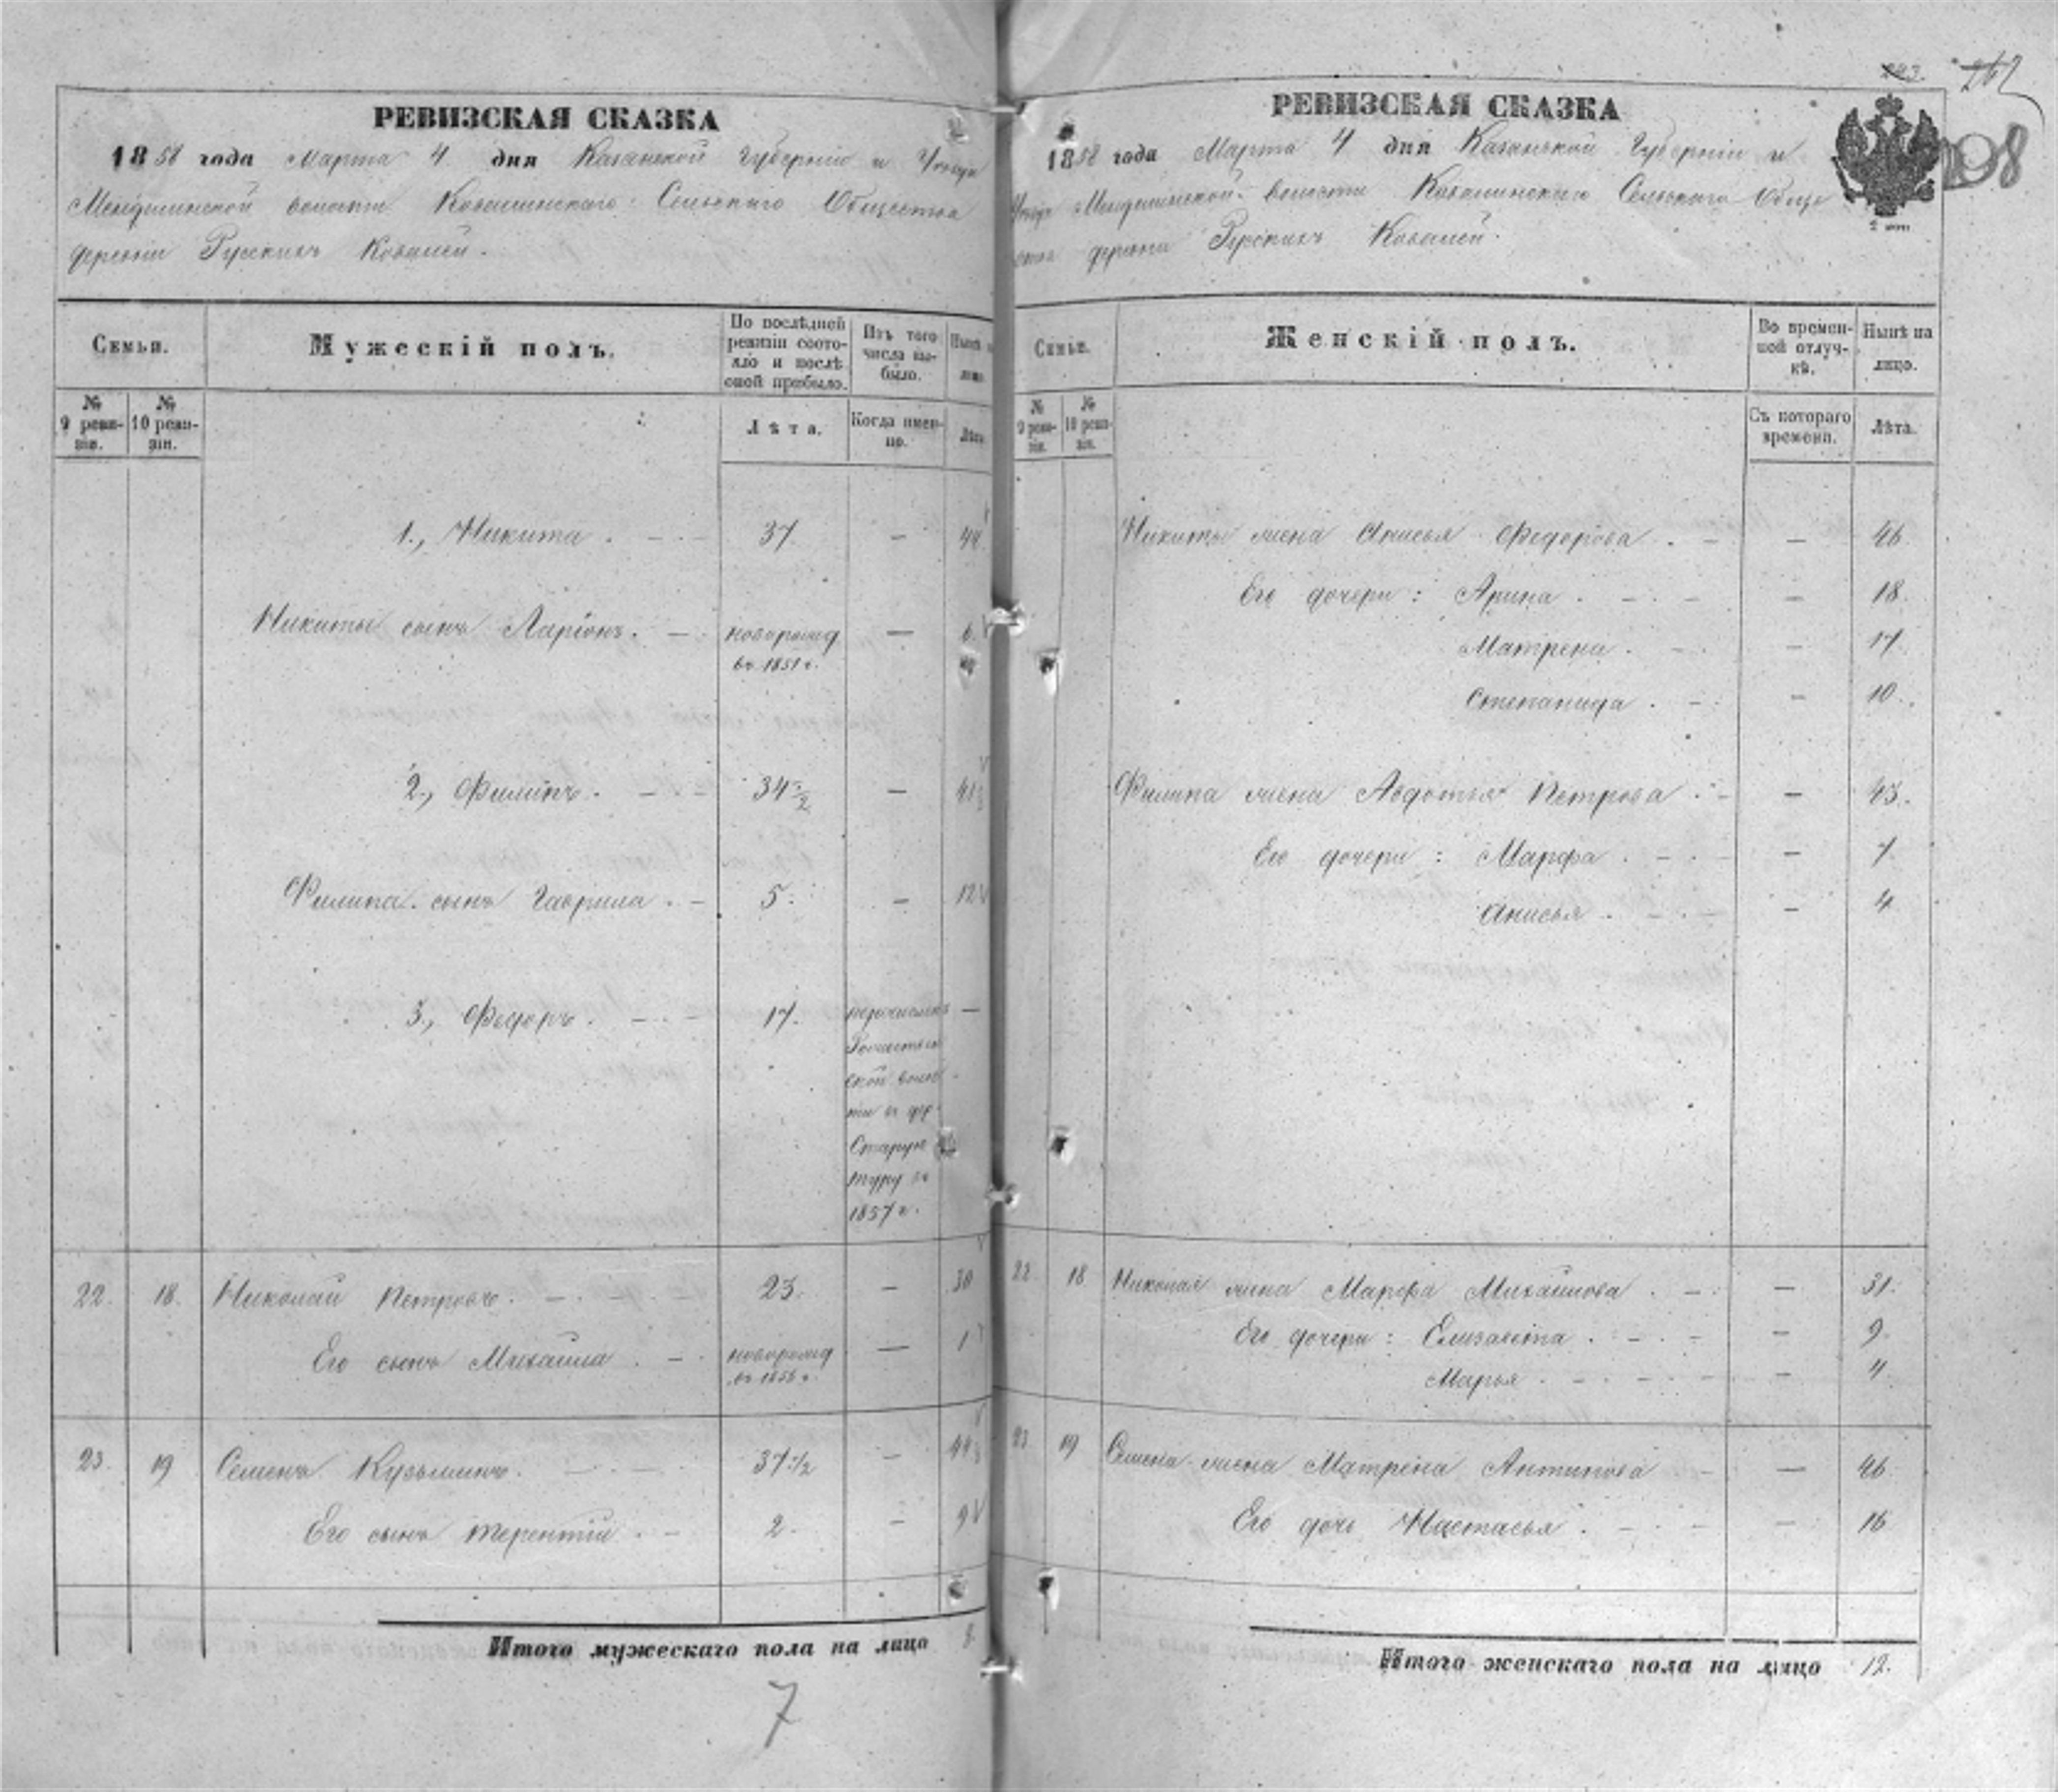 РЕВИЗСКАЯ СКАЗКА
1858 года Марта 4 дня Казанской Губернiи и Уезда
волости Сельскаго Общества
деревни Русскихъ Ковалей.
Семьи.
Мужескiй полъ.
По послѣдней ревизiи состояло и послѣ оной прибыло.
Изъ того числа выбыло.
Нынѣ на лицо.
№ 9 ревизiи.
№ 10 ревизiи.
Лѣта.
Когда именно.
Лѣта.
1., Никита . — 37. — 44
Никиты сынъ Ларiонъ. — новорожд — 6.
въ 1851 г.
2., Филипъ. — 34 1/2 — 41 1/2
Филипа сынъ Гаврила . — 5. — 12
3., Федоръ . — 17. перечисленъ —
волос
ти въ дер.
Старую
туру въ
1857 г.
22. 18. Николай Петровъ. — 23. — 30
Его сынъ Михаила . — новорожд — 1
въ 1856 г.
23. 19 Семенъ Кузьминъ. — 37 1/2 — 44 1/2
Его сынъ Терентiй . — 2. — 9
Итого мужескаго пола на лицо 8.
7
243.
262
198
РЕВИЗСКАЯ СКАЗКА
1858 года Марта 4 дня Казанской Губернiи и
Уезда волости Сельскаго Обще
ства деревни Русскихъ Ковалей.
Семьи.
Женскiй полъ.
Во временной отлучкѣ.
Нынѣ на лицо.
№ 9 ревизiи.
№ 10 ревизiи.
Съ котораго времени.
Лѣта.
Никиты жена Анисья Федорова . — — 46.
Его дочери : Арина . — — 18.
Матрена . — — 17.
Степанида . — — 10.
Филипа жена Авдотья Петрова . — — 43.
Его дочери : Марфа . — — 7
Анисья . — — 4
22. 18 Николая жена Марфа Михайлова . — — 31.
Его дочери : Елизавета . — — 9.
Марья . — — 4
23 19 Семена жена Матрена Антипова — — 46.
Его дочь Настасья . — — 16
Итого женскаго пола на лицо 12.